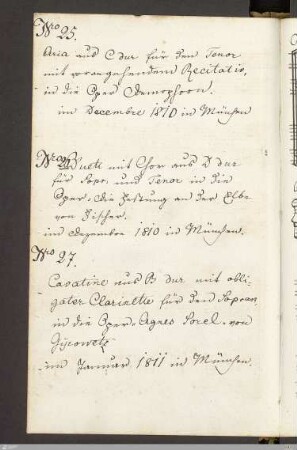 Nro 25.
Aria aus C dur für den Tenor
mit vorangehendem Recitativ,
in die Oper Demophoon.
im Decembre 1810 in München
Nro 26. Duett mit Chor aus D dur
für Sopr. und Tenor in die
Oper. Die Festung an der Elbe
von Fischer.
im Dezembre 1810 in München.
Nro 27.
Cavatine aus B dur mit obli-
gater Clarinette für den Sopran
in die Oper. Agnes Sorel. von
Gyrowetz
im Januar 1811 in München.